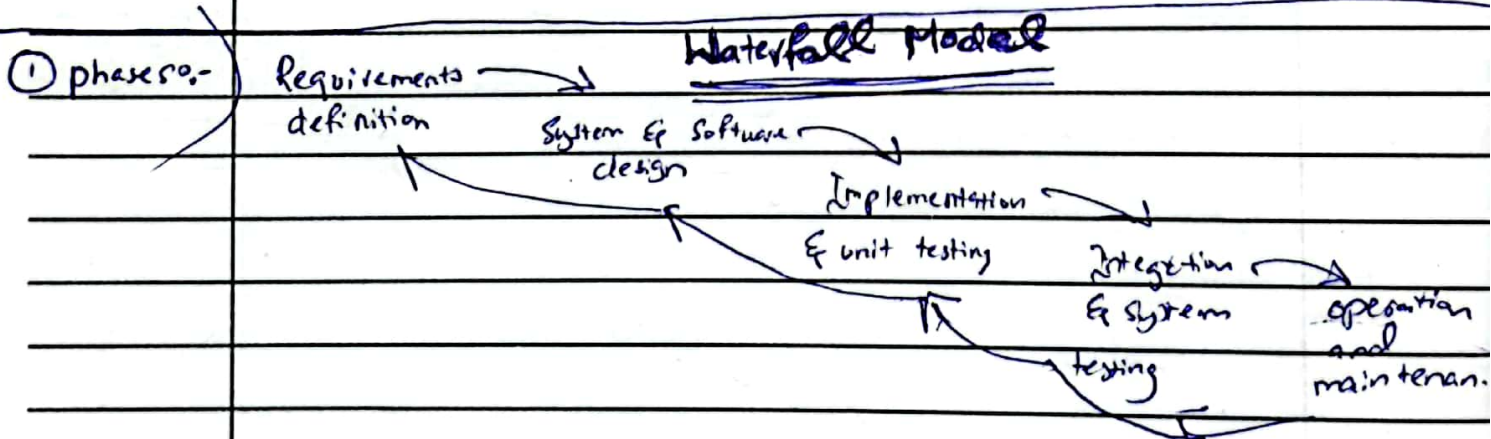 Waterfall Model
① phases:-
Requirements
definition
System & Software
design
Implementation
& unit testing
Integration
& system
testing
operation
and
maintenan.